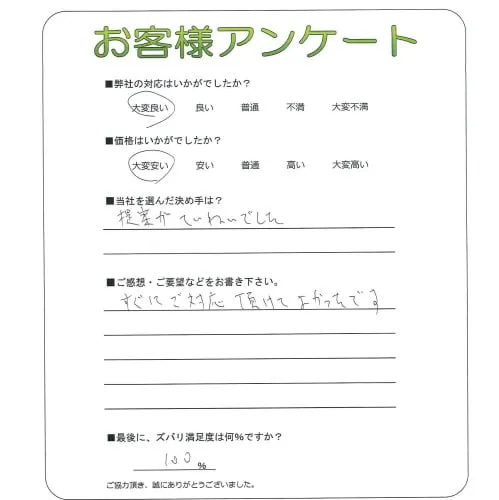 お客様アンケート
■弊社の対応はいかがでしたか？
大変良い 良い 普通 不満 大変不満
■価格はいかがでしたか？
大変安い 安い 普通 高い 大変高い
■当社を選んだ決め手は？
提案がていねいでした
■ご感想・ご要望などをお書き下さい。
すぐにご対応頂けてよかったです
■最後に、ズバリ満足度は何%ですか？
100 %
ご協力頂き、誠にありがとうございました。